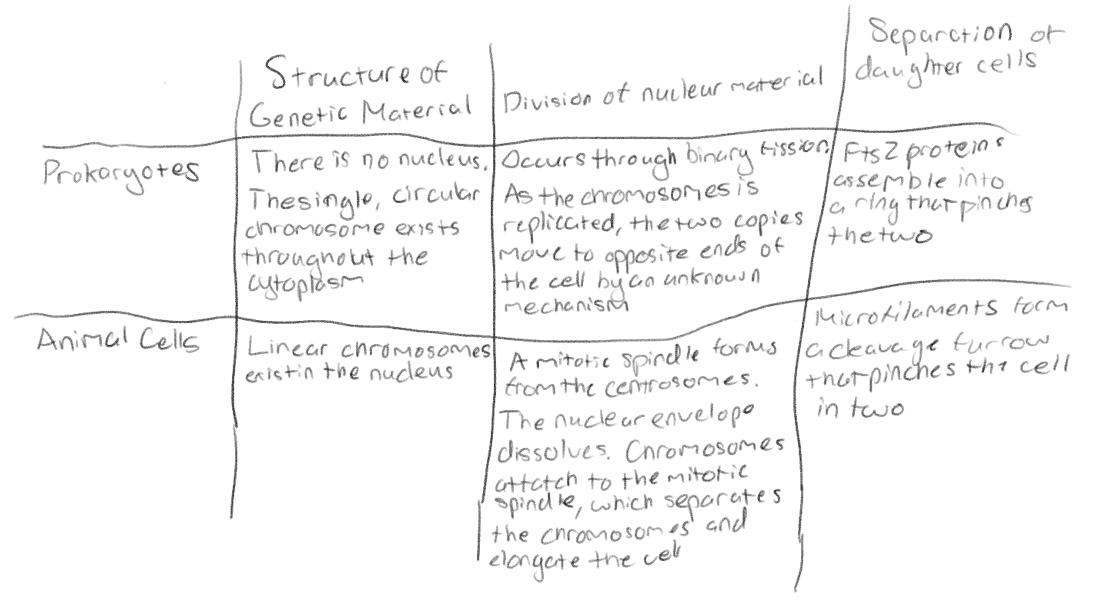 Structure of
Genetic Material
Division of nuclear material
Separation of
daughter cells
Prokaryotes
There is no nucleus.
The single, circular
chromosome exists
throughout the
cytoplasm
Occurs through binary fission.
As the chromosomes is
replicated, the two copies
move to opposite ends of
the cell by an unknown
mechanism
FtsZ proteins
assemble into
a ring that pinches
the two
Animal Cells
Linear chromosomes
exist in the nucleus
A mitotic spindle forms
from the centrosomes.
The nuclear envelope
dissolves. Chromosomes
attatch to the mitotic
spindle, which separates
the chromosomes and
elongate the cell
Microfilaments form
a cleavage furrow
that pinches the cell
in two